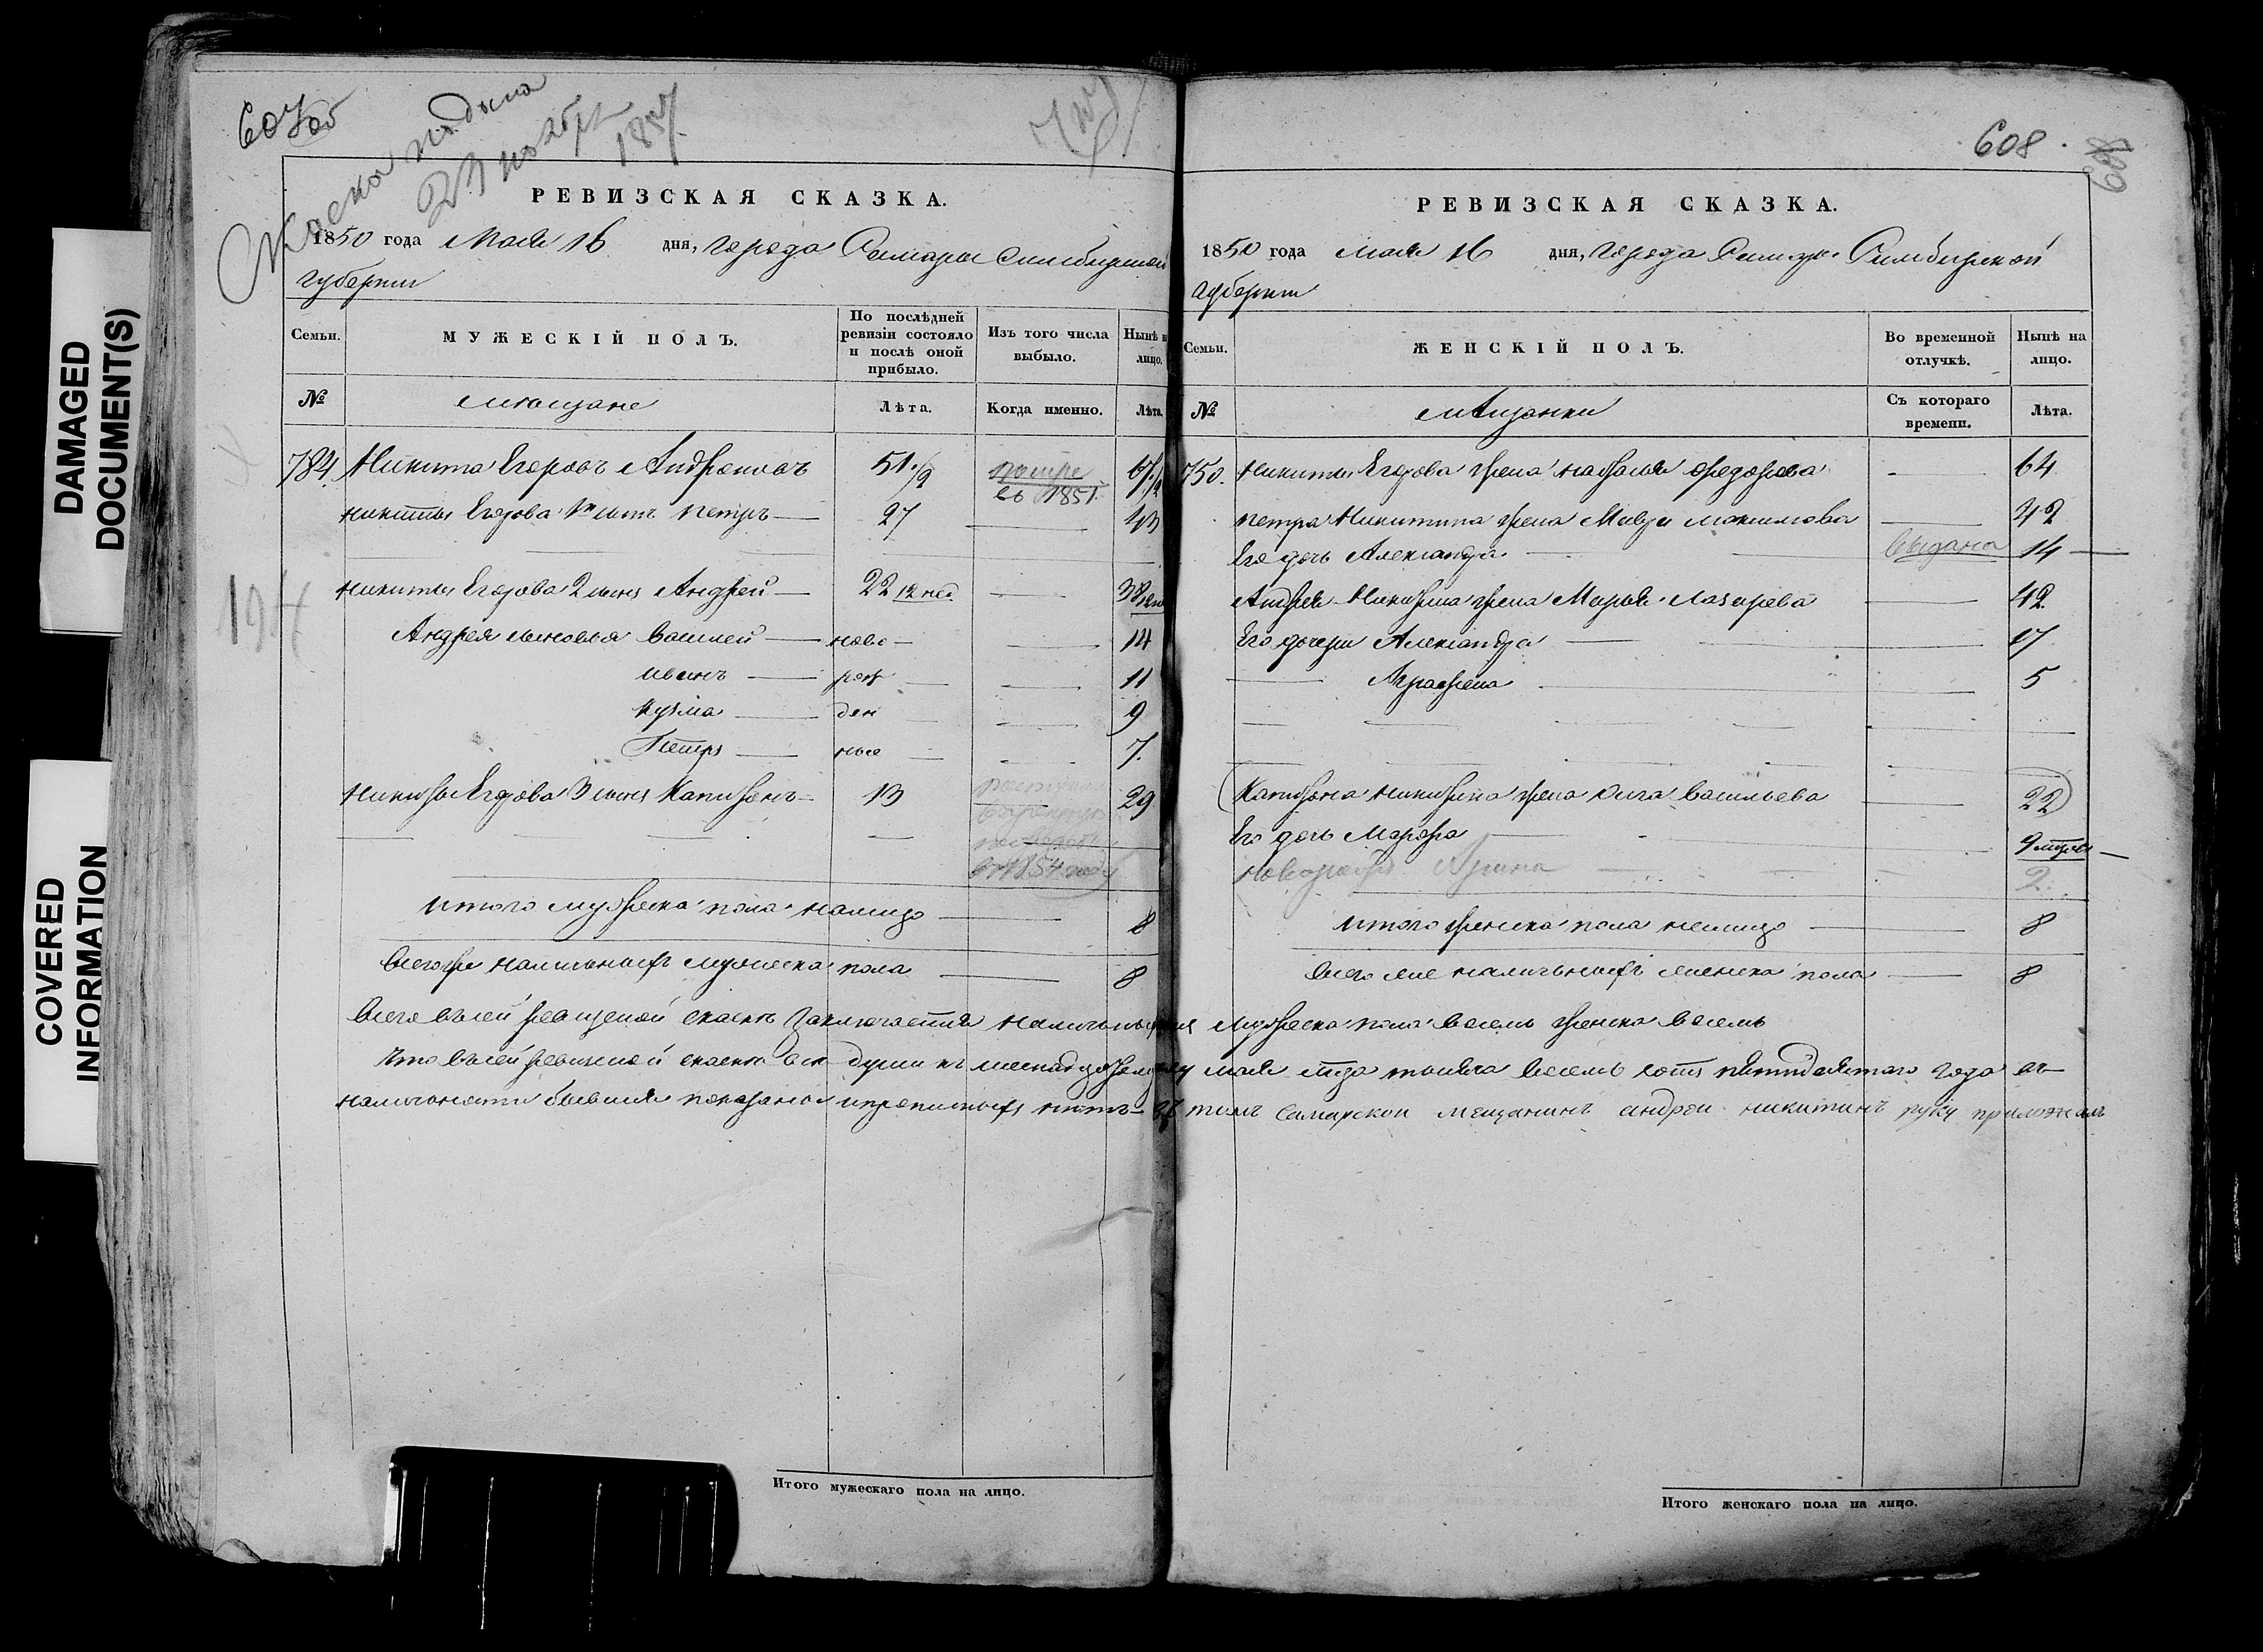 607 об
Скаска подана
23 ноябр
1857
РЕВИЗСКАЯ СКАЗКА.
1850 года Мая 16 дня, города Самары Симбирской
губернии
Семьи.
МУЖЕСКІЙ ПОЛЪ.
По послѣдней ревизіи состояло и послѣ оной прибыло.
Изъ того числа выбыло.
Нынѣ на лицо.
№
мещане
Лѣта.
Когда именно.
Лѣта.
784. Никита Егоровъ Андроновъ 51 1/2 помре въ 1851. 67 1/2
Никиты Егорова 1й сынъ Петръ — 27 — 43
Никиты Егорова 2 сынъ Андрей — 22 12 нед — 38
Андрея сыновья Василей — ново — 14
Иванъ — рож — 11
Кузма — ден — 9
Петръ — ные — 7.
Никиты Егорова 3 сынъ Капитонъ — 13 29
в 1854 году
194
Итого мужеска пола налицо — 8
Всего же наличныхъ мужеска пола — 8
608.
608
РЕВИЗСКАЯ СКАЗКА.
1850 года мая 16 дня, города Самары Симбирской
губернии
Семьи.
ЖЕНСКІЙ ПОЛЪ.
Во временной отлучкѣ.
Нынѣ на лицо.
№
мещанки
Съ котораго времени.
Лѣта.
750. Никиты Егорова жена Наталья Федорова — 64
Петра Никитина жена Мавра Максимова — 42
Его дочь Александра — выдана 14 —
Андрея Никитина жена Марья Лазарева — 42
Его дочери Александра — 17
— Аграфена — 5
Капитона Никитина жена Васильева — 22
Его дочь Марфа — 9 —
Новорожд Арина — 2.
Итого женска пола налицо — 8
Всего же наличныхъ женска пола — 8
Всего въ сей ревиской скаске заключается наличныхъ мужеска пола восемь женска восемь
Что въ сей ревиской скаске все души къ шестнадцатому мая тысяча восемь сотъ пятидесятого года въ
наличности бывшия показаны и прописныхъ нетъ — въ томъ Самарской мещанинъ андреи никитинъ руку приложилъ
Итого мужескаго пола на лицо.
Итого женскаго пола на лицо.
DAMAGED
DOCUMENT(S)
COVERED
INFORMATION